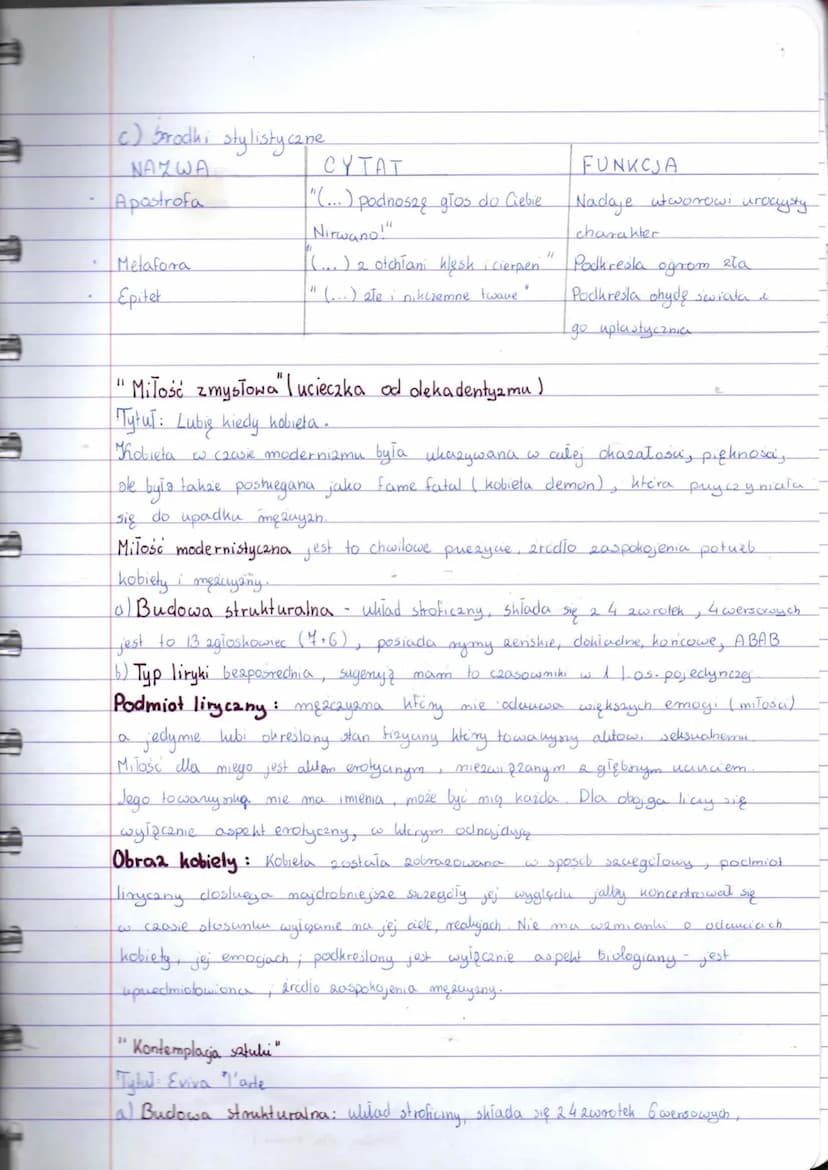 c) Środki stylistyczne
NAZWA CYTAT FUNKCJA
Apostrofa "(...) podnoszę głos do Ciebie Nadaje utworowi uroczysty
Nirwano!" charakter
Metafora "(...) z otchłani klęsk i cierpień" Podkreśla ogrom zła
Epitet "(...) złe i nikczemne twarze" Podkreśla ohydę świata i
go uplastycznia
"Miłość zmysłowa" (ucieczka od dekadentyzmu)
Tytuł: Lubię kiedy kobieta.
Kobieta w czasie modernizmu była ukazywana w całej okazałości, piękności,
ale była także postrzegana jako fame fatal (kobieta demon), która przyczyniała
się do upadku mężczyzn.
Miłość modernistyczna jest to chwilowe przeżycie, źródło zaspokojenia potrzeb
kobiety i mężczyzny.
a) Budowa strukturalna - układ stroficzny, składa się z 4 zwrotek, 4 wersowych
jest to 13 zgłoskowiec (7+6), posiada rymy żeńskie, dokładne, końcowe, ABAB
b) Typ liryki bezpośrednia, sugerują mam to czasowniki w 1 l.os. pojedynczej
Podmiot liryczny: mężczyzna który nie odczuwa większych emocji (miłości)
a jedynie lubi określony stan fizyczny który towarzyszy aktowi seksualnemu.
Miłość dla niego jest aktem erotycznym, niezwiązanym z głębszym uczuciem.
Jego towarzyszką nie ma imienia, może być nią każda. Dla obojga liczy się
wyłącznie aspekt erotyczny, w którym odnajdują
Obraz kobiety: Kobieta została zobrazowana w sposób szczegółowy, podmiot
liryczny dostrzega najdrobniejsze szczegóły jej wyglądu jakby koncentrował się
w czasie stosunku wyłącznie na jej ciele, reakcjach. Nie ma wzmianki o odczuciach
kobiety, jej emocjach; podkreślony jest wyłącznie aspekt biologiczny - jest
uprzedmiotowiona, źródło zaspokojenia mężczyzny.
"Kontemplacja sztuki"
Tytuł: Eviva "l'arte
a) Budowa strukturalna: układ stroficzny, składa się z 4 zwrotek 6 wersowych,